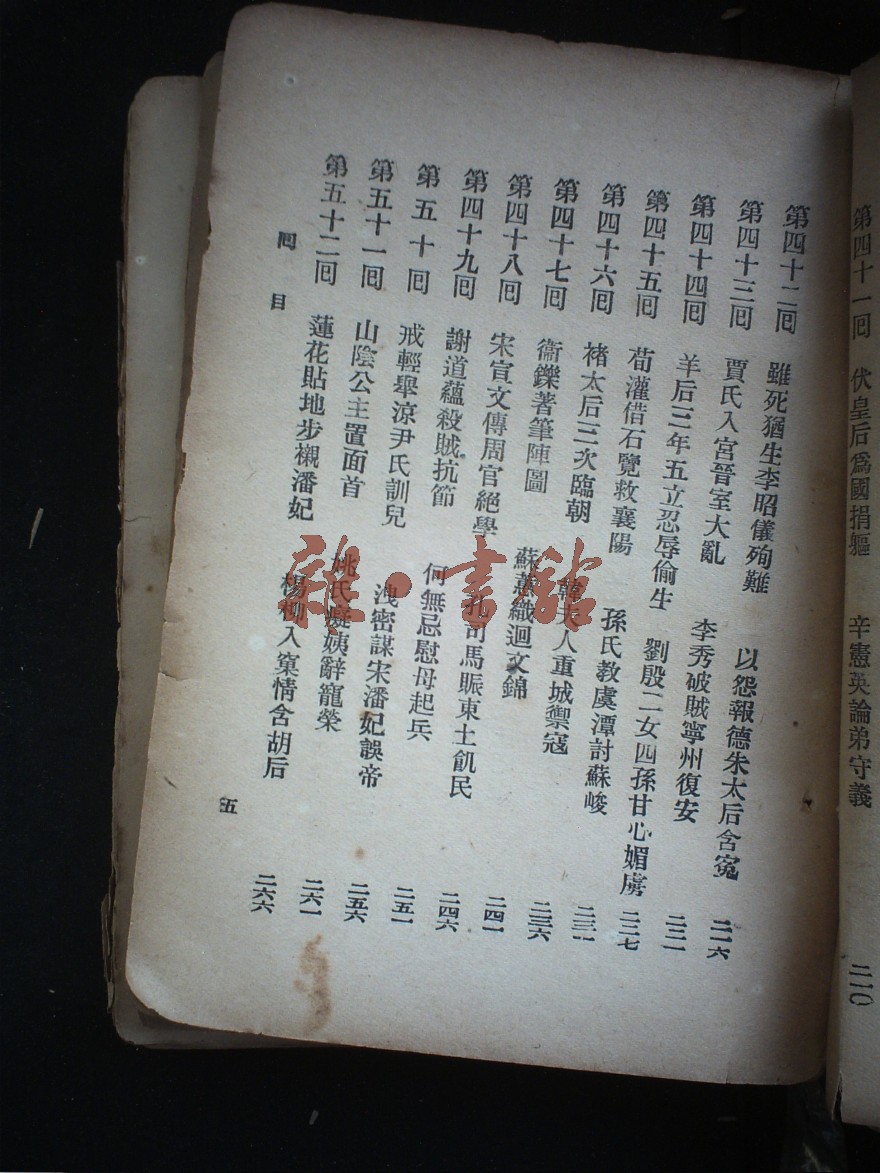 第四十一回 伏皇后爲國捐軀 辛憲英論弟守義 二一〇
第四十二回 雖死猶生李昭儀殉難 以怨報德朱太后含寃 二一六
第四十三回 賈氏入宮晉室大亂 李秀破賊寧州復安 二二一
第四十四回 羊后三年五立忍辱偷生 劉殷二女四孫甘心媚虜 二二七
第四十五回 荀灌借石覽救襄陽 孫氏教虞潭討蘇峻 二三一
第四十六回 褚太后三次臨朝 韓夫人重城禦寇 二三六
第四十七回 衞鑠著筆陣圖 蘇蕙織迴文錦 二四一
第四十八回 宋宣文傳周官絕學 孔司馬賑東土飢民 二四六
第四十九回 謝道蘊殺賊抗節 何無忌慰母起兵 二五一
第五十回 戒輕舉涼尹氏訓兒 洩密謀宋潘妃誤帝 二五六
第五十一回 山陰公主置面首 姚氏癡姨辭寵榮 二六一
第五十二回 蓮花貼地步襯潘妃 楊柳入窠情含胡后 二六六
回目 五
雜·書館